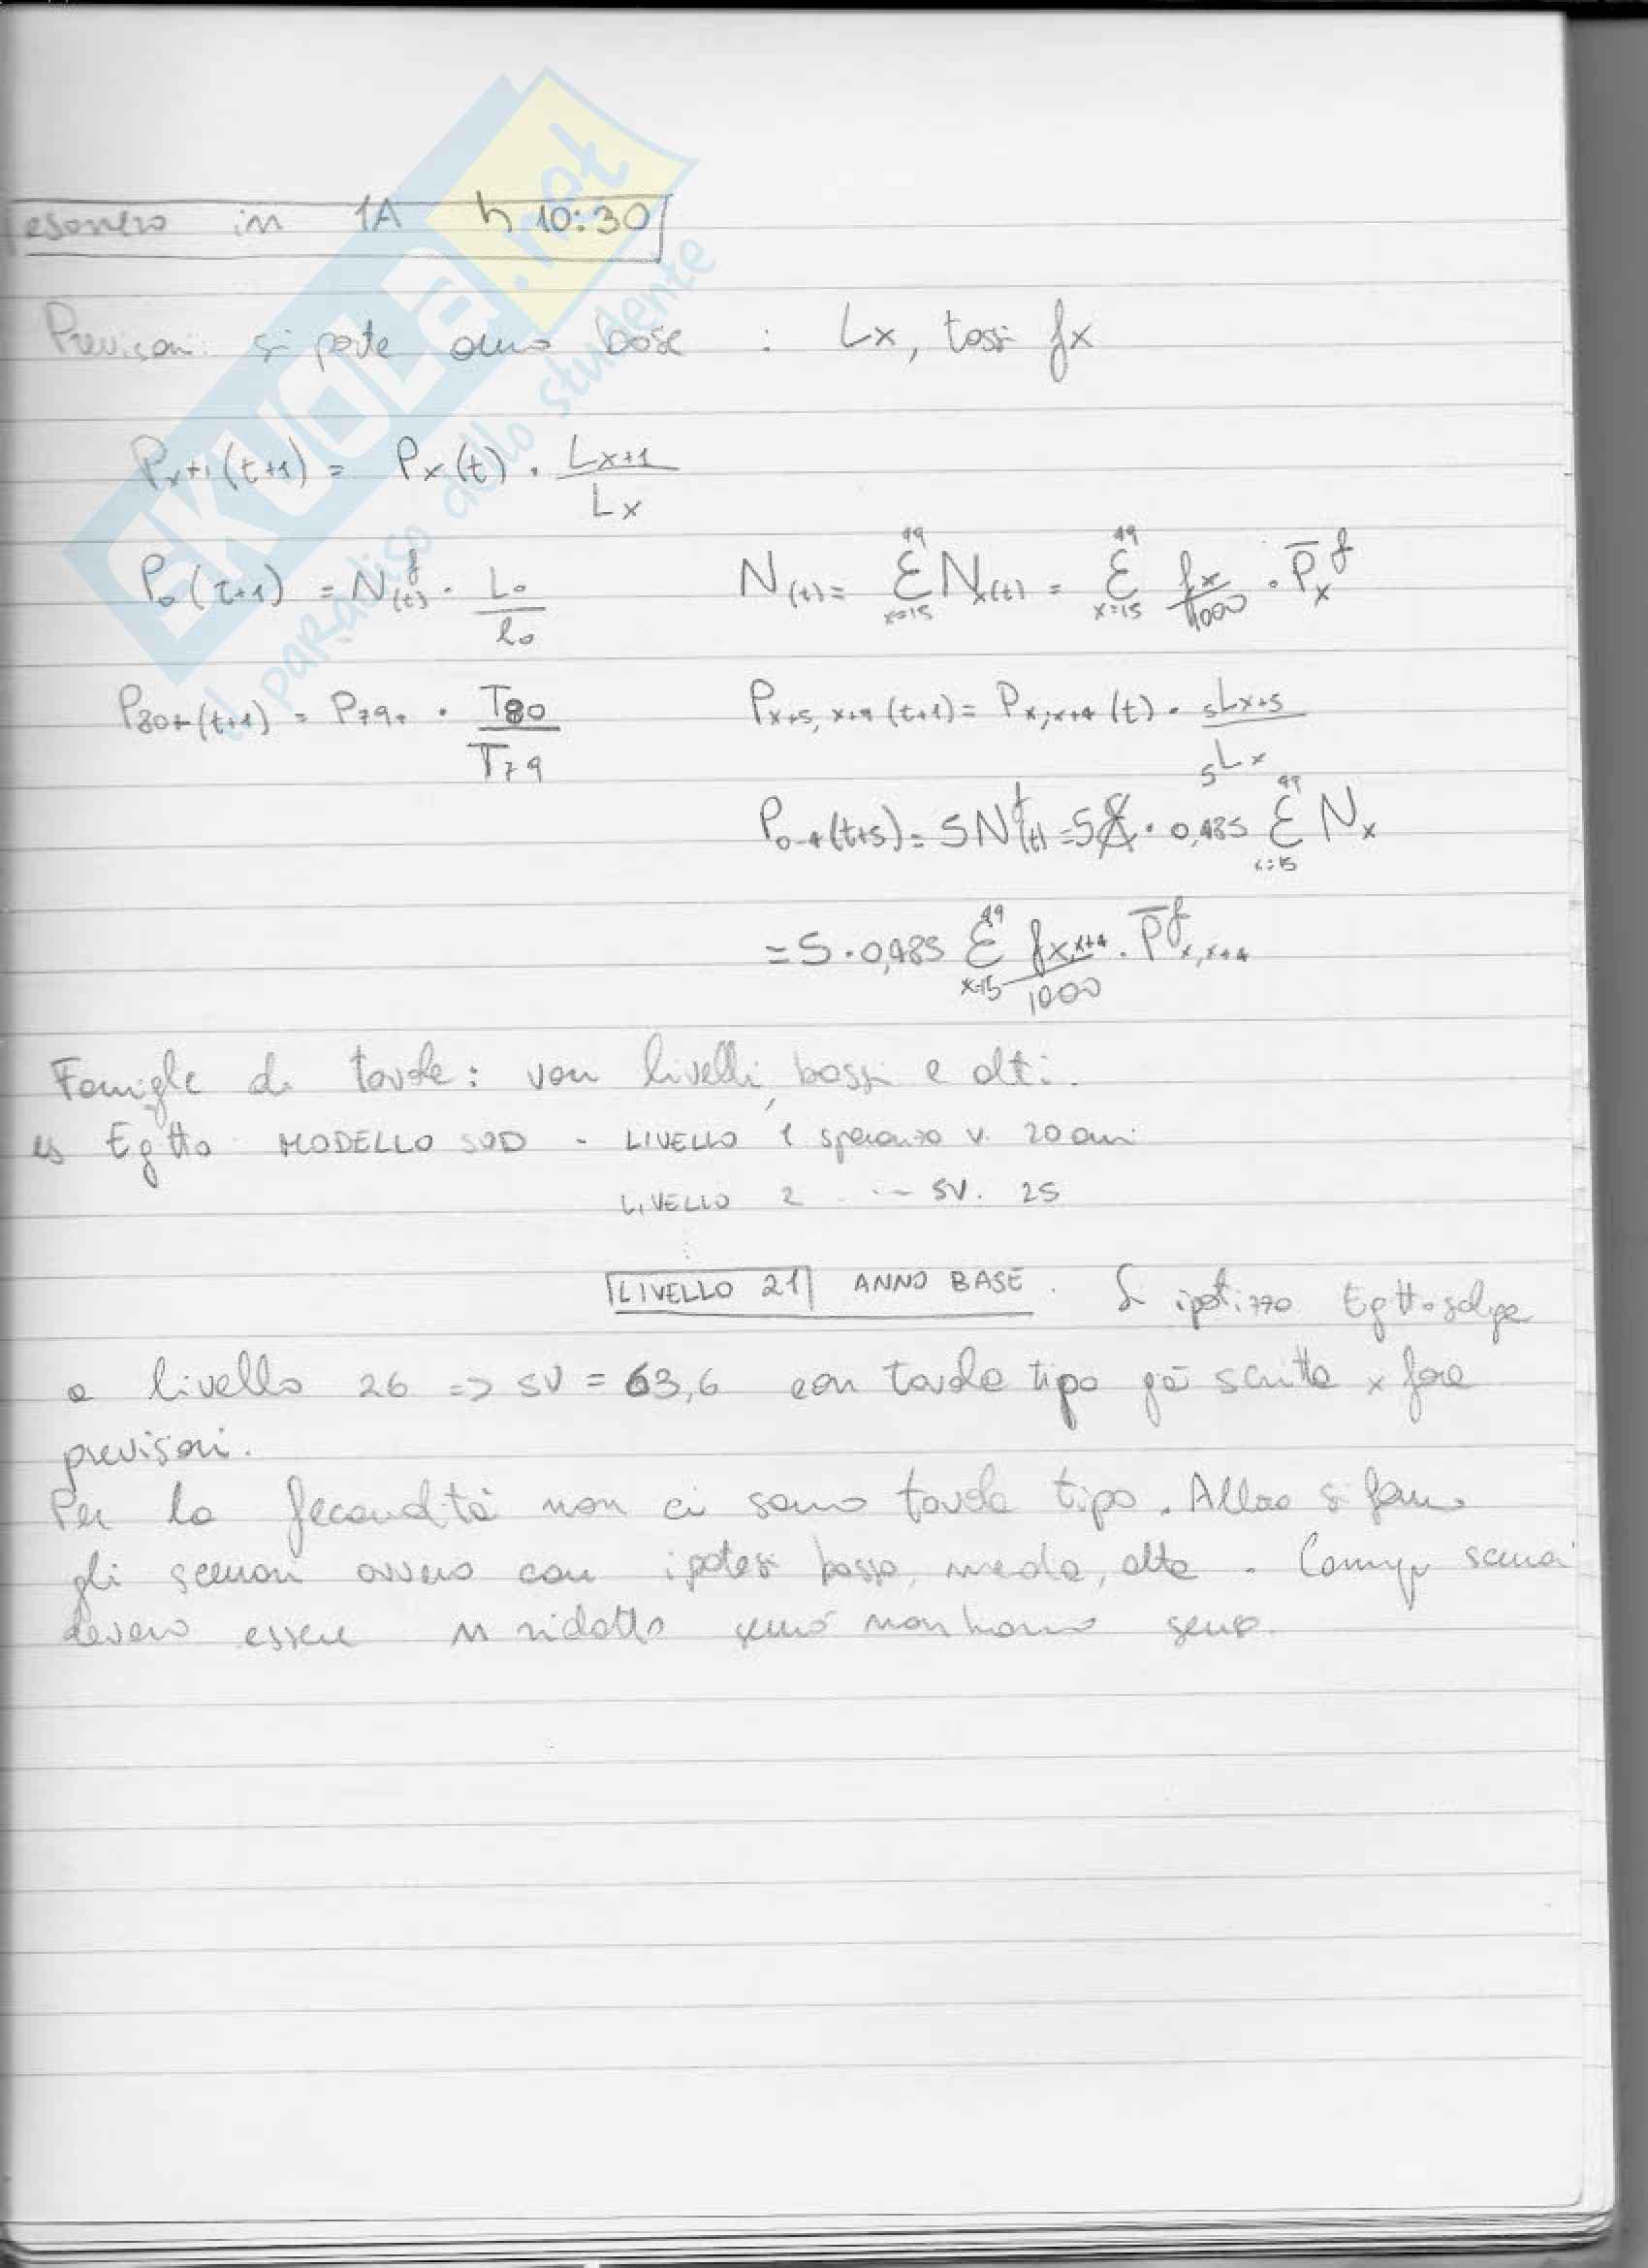 esonero in 1A h 10:30
Previsioni si parte anno base : Lx, tassi fx
Px+1 (t+1) = Px (t) · Lx+1 / Lx
P0 (t+1) = N(t)^f · L0 / l0
N(t) = Σ x=15 49 Nx(t) = Σ x=15 49 fx / 1000 · P̄x^f
P80+ (t+1) = P79+ · T80 / T79
Px+5, x+9 (t+1) = Px, x+4 (t) · 5Lx+5 / 5Lx
P0-4 (t+5) = 5N^f(t) = 5 · 0,485 Σ x=15 49 Nx
= 5 · 0,485 Σ x=15 49 fx,x+4 / 1000 · P̄^f x,x+4
Famiglie di tavole: vari livelli, bassi e alti.
es Egitto MODELLO SUD - LIVELLO 1 speranza v. 20 anni
LIVELLO 2 SV. 25
LIVELLO 21 ANNO BASE. Si ipotizza Egitto salga
a livello 26 => SV = 63,6 con tavole tipo già scritte x fare
previsioni.
Per la fecondità non ci sono tavole tipo. Allora si fanno
gli scenari ovvero con ipotesi bassa, media, alta. scenari
devono essere in ridotto sennò non hanno senso.
SKUOLA.net
il paradiso dello studente